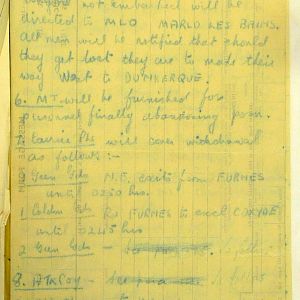 not embarked will be
directed to MLO MARLO LES BAINS.
All men will be notified that should
they get lost they are to make their
way West to DUNKERQUE.
6. MT. will be furnished for
personnel finally abandoning posn.
7. Carrier Pls will cover withdrawal
as follows:-
Gren Gds N.E. exits from FURNES
until 0230 hrs.
1 Coldm Gds Rd FURNES to excl COXYDE
until 0245 hrs
2 Gren Gds -
8. ATK Coy -